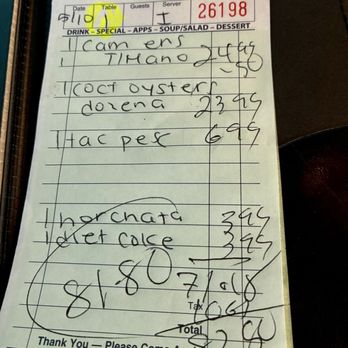 Date Table Guests Server 26198
5/10 1 I
DRINK – SPECIAL – APPS – SOUP/SALAD – DESSERT
1 cam ens 2499
1 T/Mano -50
1 coct oysters
dozena 2399
1 tac pes 699
1 horchata 399
1 diet coke 399
81.80
Tax
Total
Thank You — Please Come